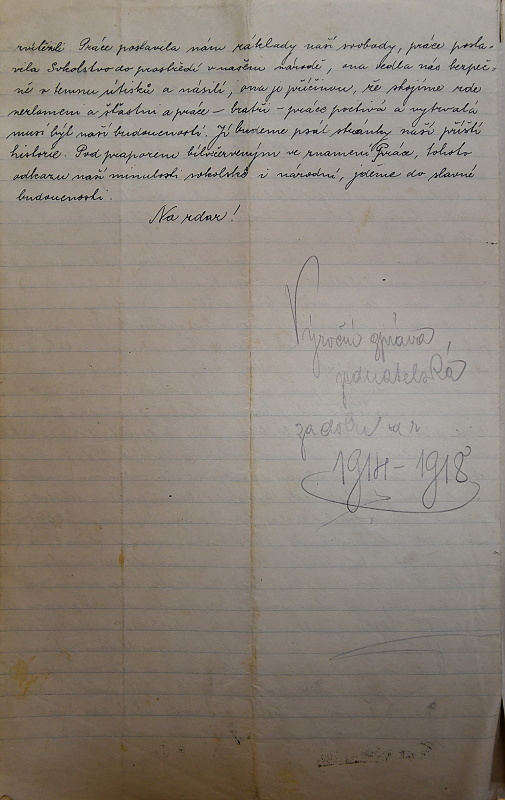 zvítězili. Práce postavila nám základy naší svobody, práce posta-
vila Sokolstvo do prostředí v našem národě, ona vedla nás bezpeč-
ně v temnu útisků a násilí, ona je příčinou, že stojíme zde
nezlomeni a šťastni a práce – bratři – práce poctivá a vytrvalá
musí být naší budoucností. Jí budeme psát stránky naší příští
historie. Pod praporem bíločerveným ve znamení Práce, tohoto
odkazu naší minulosti sokolské i národní, jdeme do slavné
budoucnosti.
Na zdar!
Výroční zpráva
jednatelská
za dobu
1914 – 1918